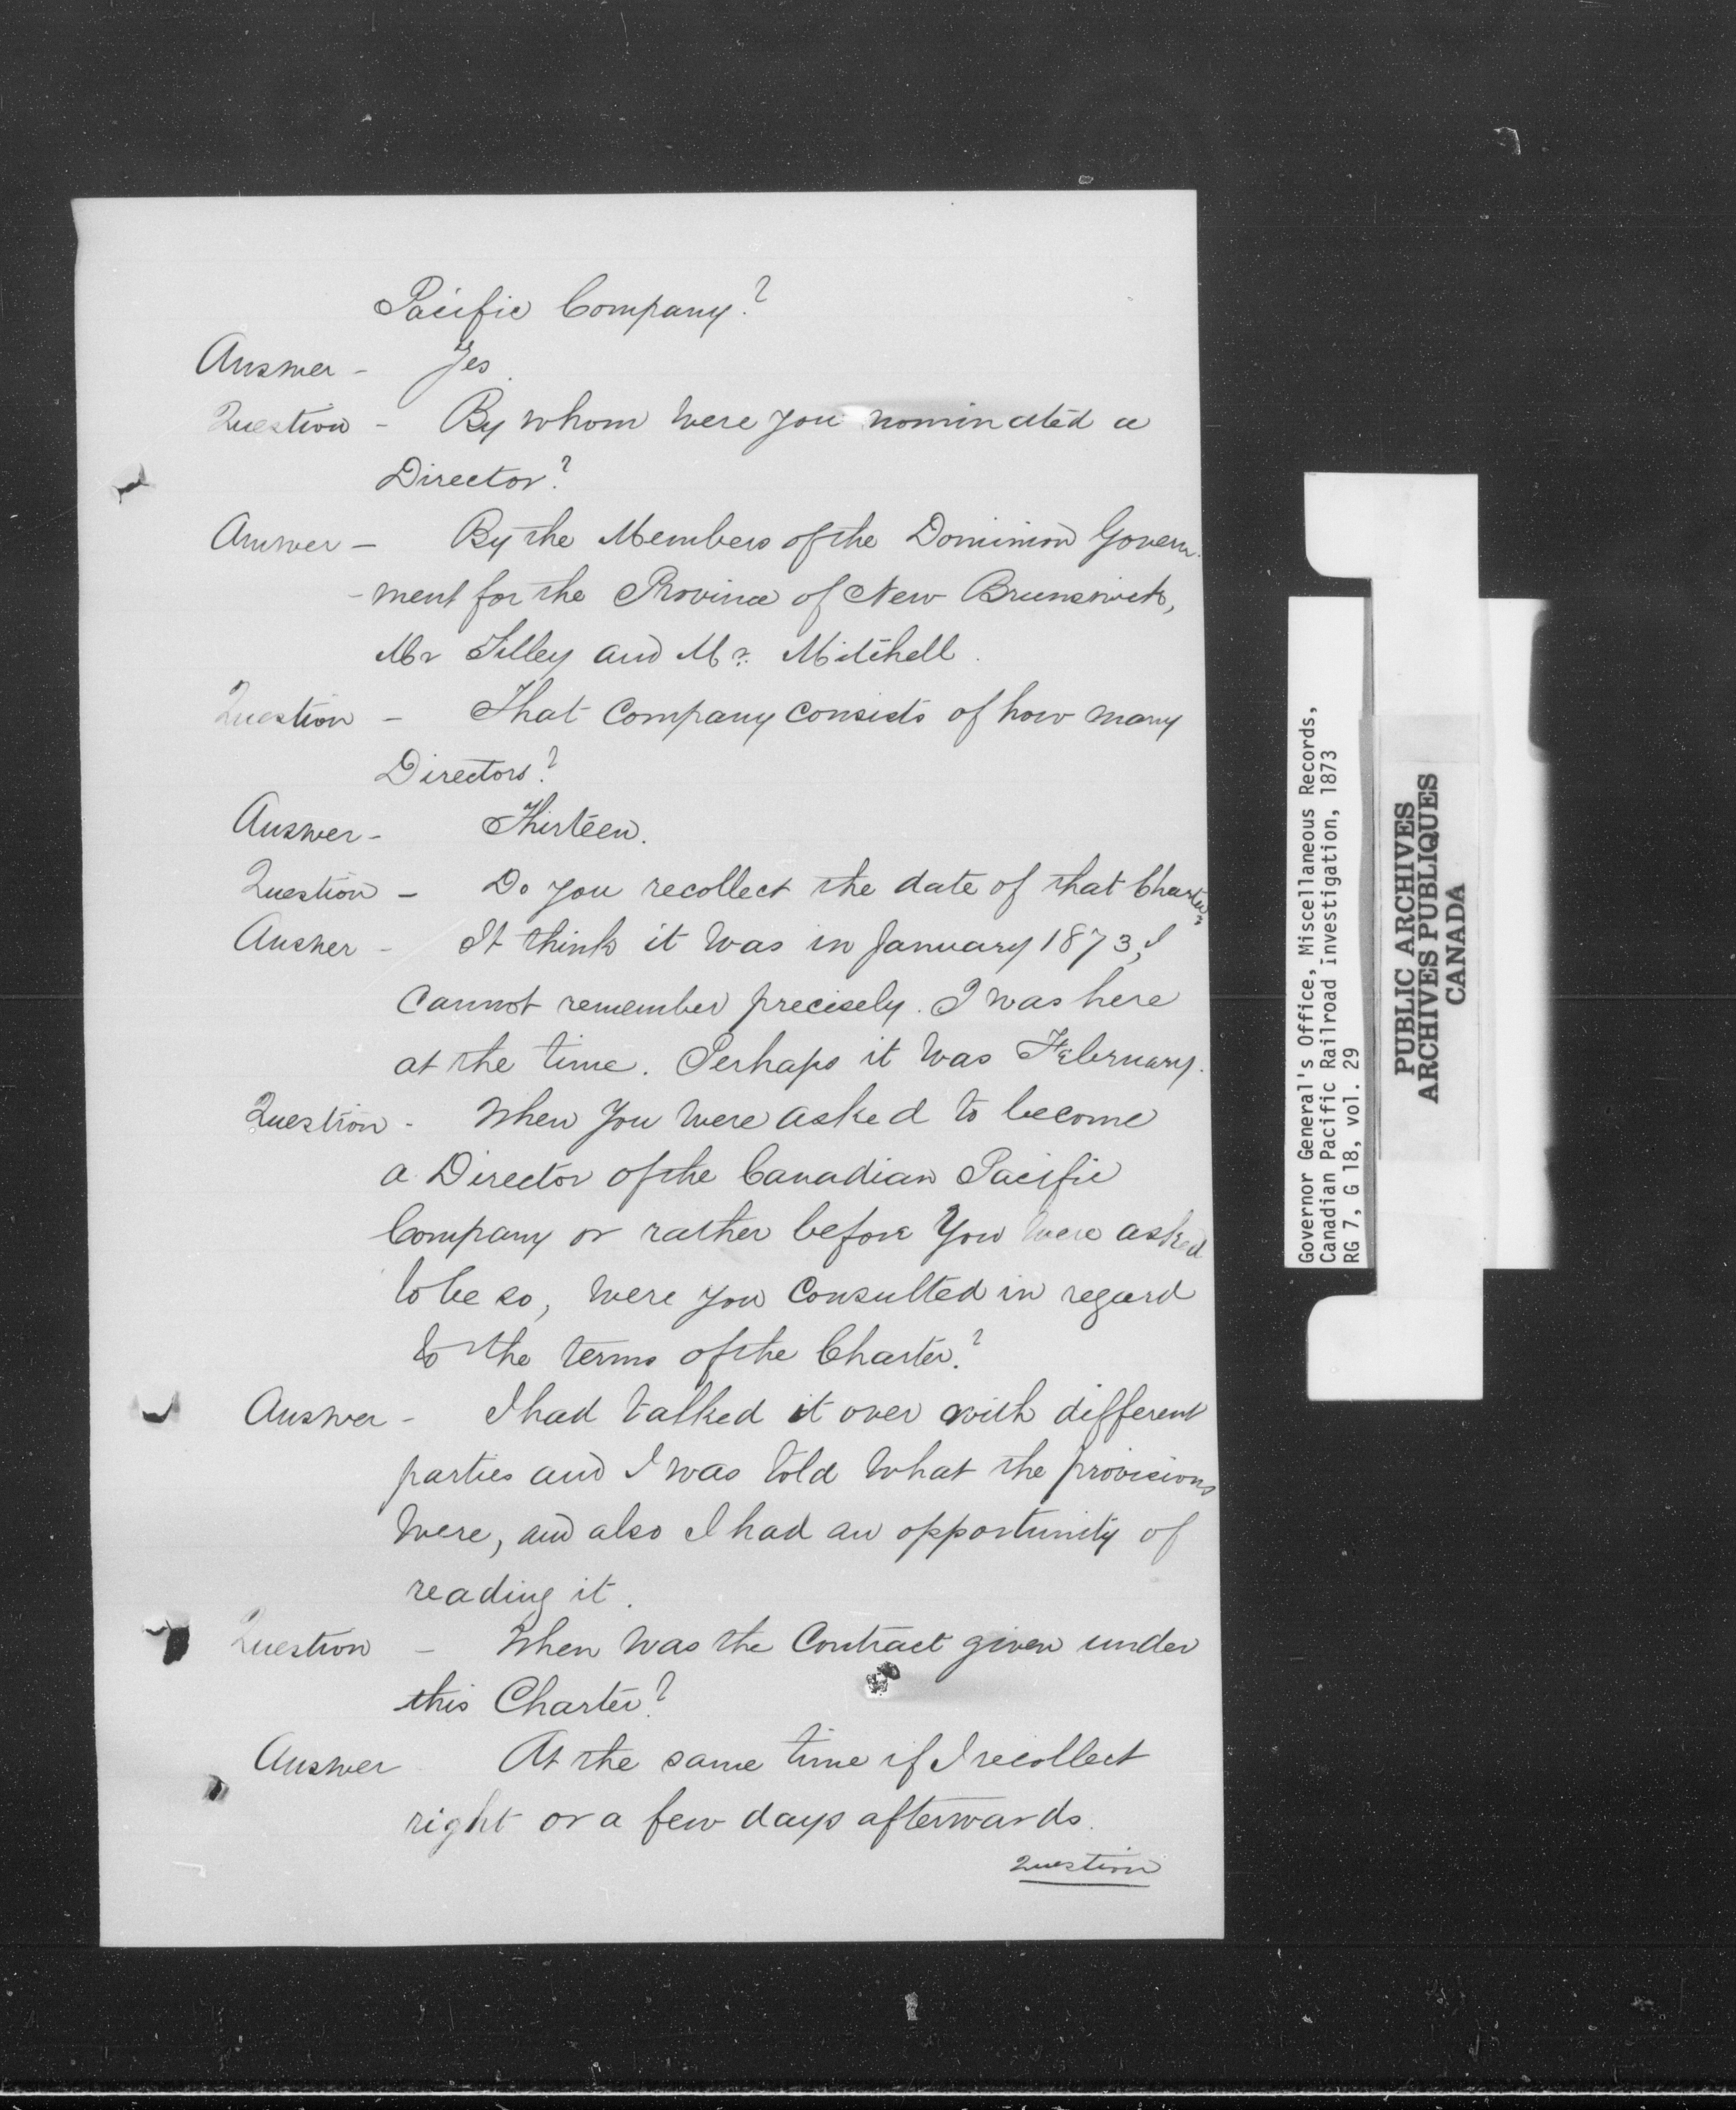 Pacific Company?
Answer - Yes.
Question - By whom were you nominated a
Director?
Answer - By the Members of the Dominion Govern-
-ment for the Province of New Brunswick,
Mr Tilley and Mr. Mitchell.
Question - That Company consists of how many
Directors?
Answer - Thirteen.
Question - Do you recollect the date of that Charter?
Answer - It think it was in January 1873, I
cannot remember precisely. I was here
at the time. Perhaps it was February.
Question - When you were asked to become
a Director of the Canadian Pacific
Company or rather before you were asked
to be so, were you consulted in regard
to the terms of the Charter?
Answer - I had talked it over with different
parties and I was told what the provisions
were, and also I had an opportunity of
reading it.
Question - When was the Contract given under
this Charter?
Answer At the same time if I recollect
right or a few days afterwards.
Question
Governor General's Office, Miscellaneous Records,
Canadian Pacific Railroad investigation, 1873
RG 7, G 18, vol. 29
PUBLIC ARCHIVES
ARCHIVES PUBLIQUES
CANADA